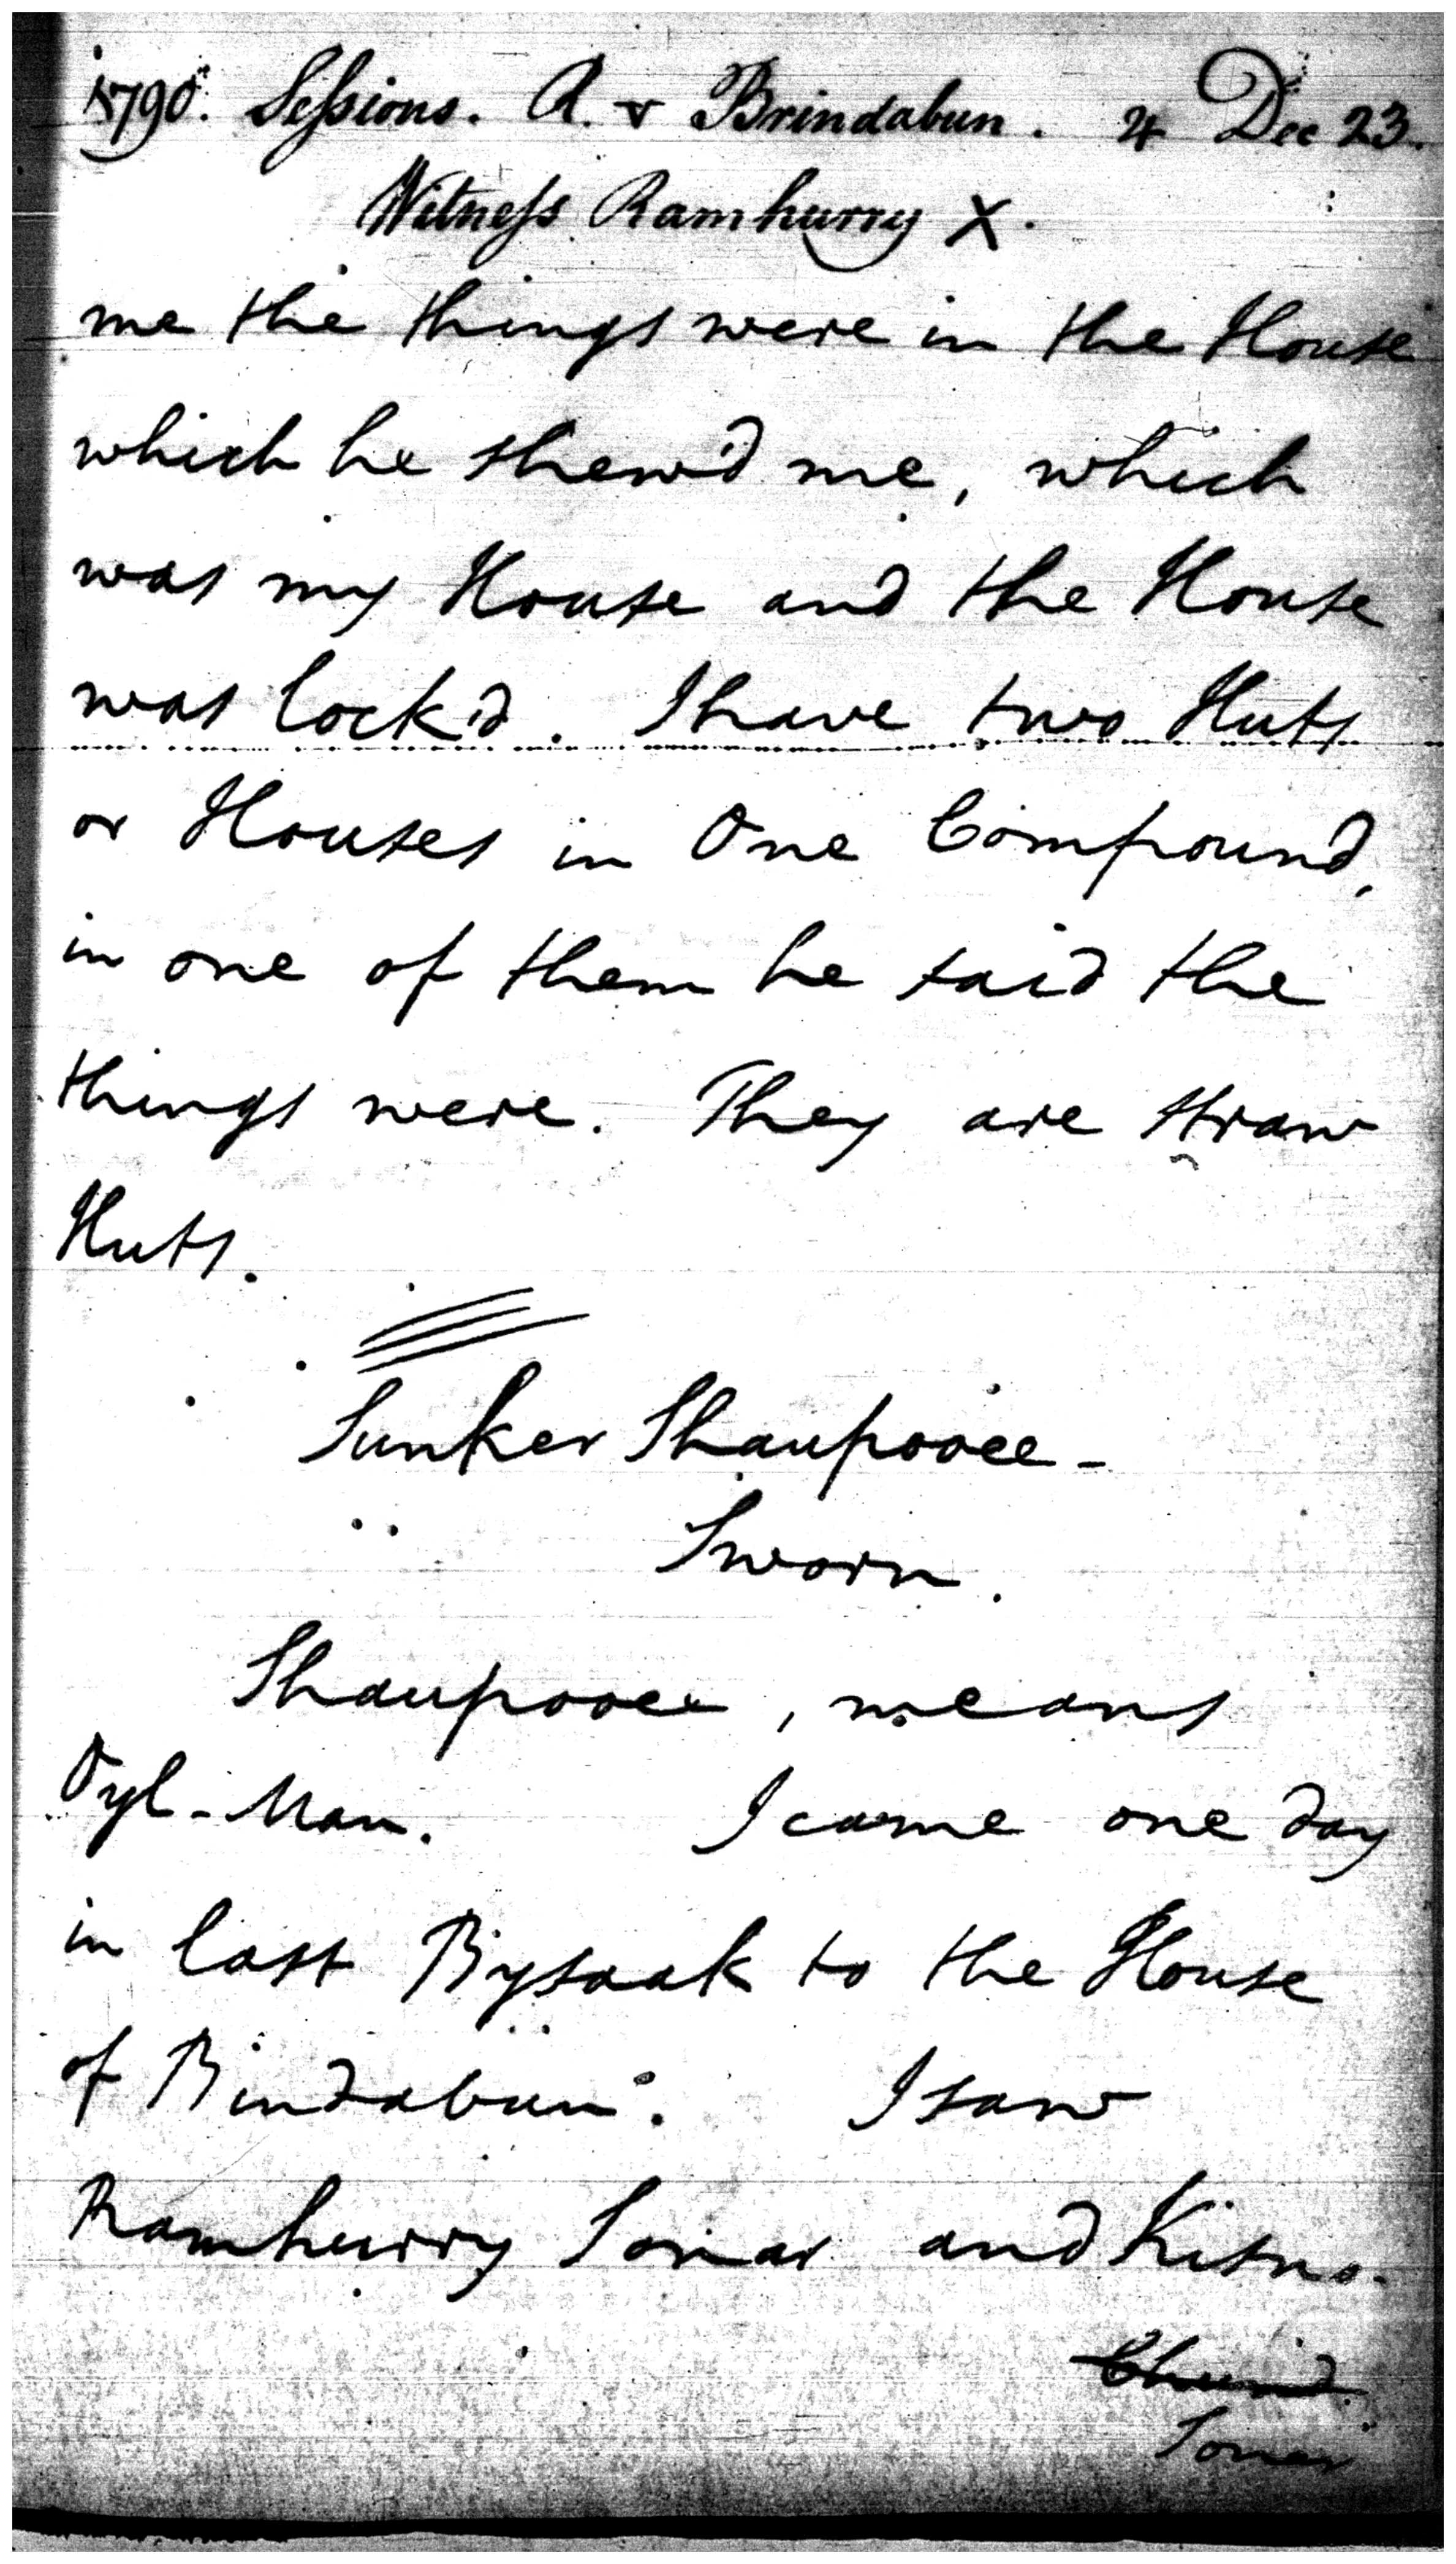 1790. Sessions. R. v Brindabun. 4 Dec 23.
Witness Ramhurry X.
me the things were in the House
which he shew'd me, which
was my House and the House
was lock'd. I have two Huts
or Houses in One Compound,
in one of them he said the
things were. They are straw
Huts.
Sunker Shaupooee -
Sworn.
Shaupooee, means
Oyl-Man. I came one day
in last Bysaak to the House
of Bindabun. I saw
Ramhurry Sonar and Kisno-
Chund
Soner